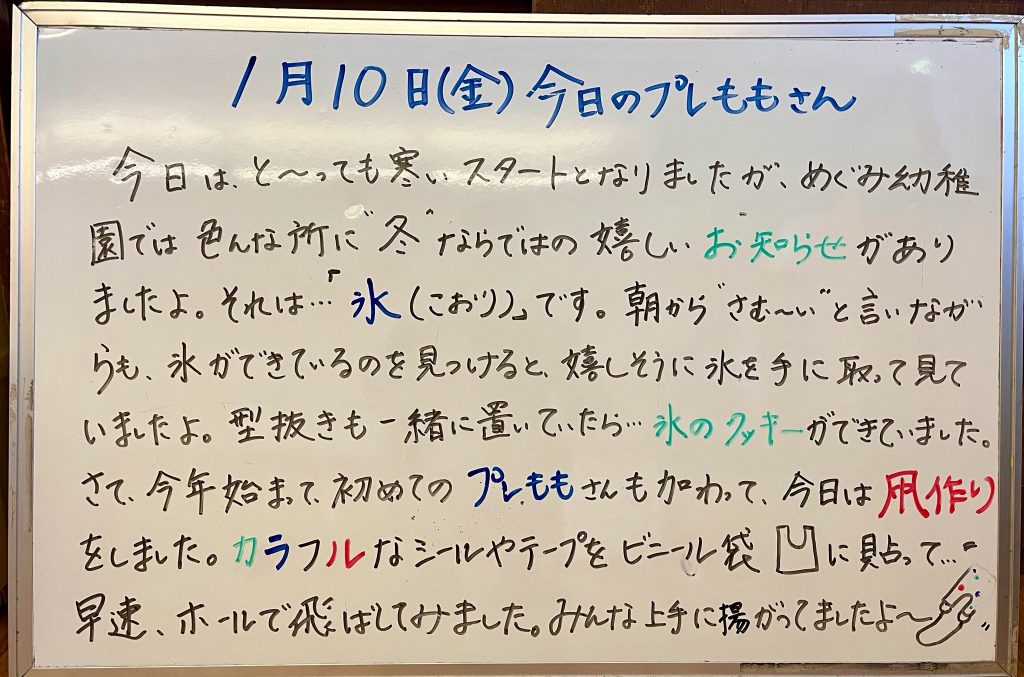 1月10日(金)今日のプレももさん
今日は、と〜っても寒いスタートとなりましたが、めぐみ幼稚
園では色んな所に"冬"ならではの嬉しいお知らせがあり
ましたよ。それは…「氷(こおり)」です。朝から"さむ〜い"と言いなが
らも、氷ができているのを見つけると、嬉しそうに氷を手に取って見て
いましたよ。型抜きも一緒に置いていたら…氷のクッキーができていました。
さて、今年始まって、初めてのプレももさんも加わって、今日は凧作り
をしました。カラフルなシールやテープをビニール袋に貼って…
早速、ホールで飛ばしてみました。みんな上手に揚がってましたよ〜